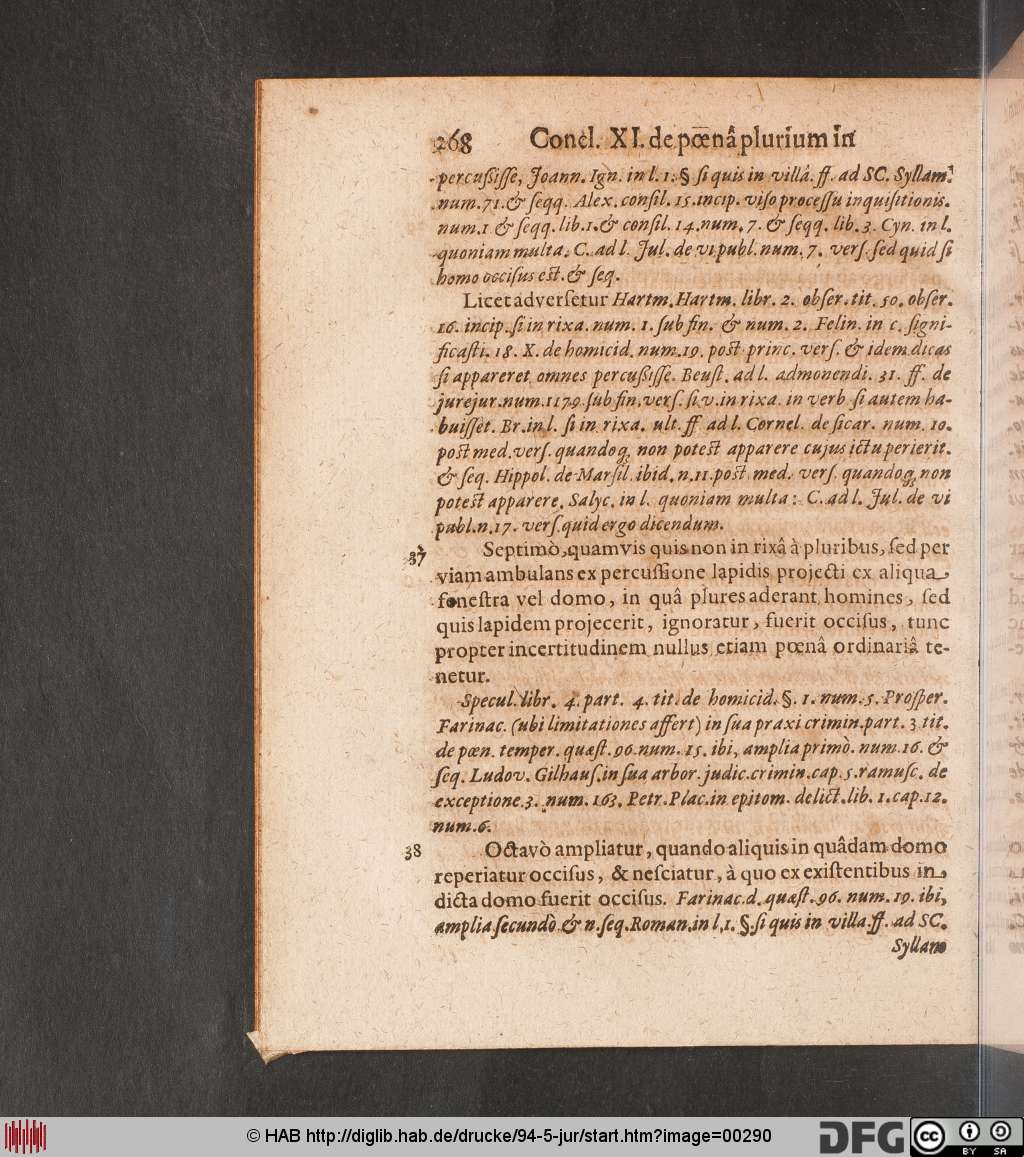 268 Concl. XI. de pœnâ plurium in
percußisse, Joann. Ign. in l. 1. § si quis in villâ. ff. ad SC. Syllam.
num. 71. & seqq. Alex. consil. 15. incip. viso processu inquisitionis.
num. 1 & seqq. lib. 1. & consil. 14. num. 7. & seqq. lib. 3. Cyn. in l.
quoniam multa. C. ad l. Jul. de vi publ. num. 7. vers. sed quid si
homo occisus est. & seq.
Licet adversetur Hartm. Hartm. libr. 2. obser. tit. 50. obser.
16. incip. si in rixa. num. 1. sub fin. & num. 2. Felin. in c. signi-
ficasti. 18. X. de homicid. num. 19. post princ. vers. & idem dicas
si appareret omnes percußisse. Beust. ad l. admonendi. 31. ff. de
jurejur. num. 1179. sub fin. vers. si. v. in rixa. in verb si autem ha-
buisset. Br. in l. si in rixa. ult. ff ad l. Cornel. de sicar. num. 10.
post med. vers. quandoq; non potest apparere cujus ictu perierit.
& seq. Hippol. de Marsil. ibid. n. 11. post med. vers. quandoq; non
potest apparere. Salyc. in l. quoniam multa: C. ad l. Jul. de vi
publ. n. 17. vers. quid ergo dicendum.
37 Septimò, quamvis quis non in rixâ à pluribus, sed per
viam ambulans ex percussione lapidis projecti ex aliqua
fenestra vel domo, in quâ plures aderant homines, sed
quis lapidem projecerit, ignoratur, fuerit occisus, tunc
propter incertitudinem nullus etiam pœnâ ordinariâ te-
netur.
Specul. libr. 4. part. 4. tit. de homicid. §. 1. num. 5. Prosper.
Farinac. (ubi limitationes affert) in sua praxi crimin. part. 3. tit.
de pœn. temper. quæst. 96. num. 15. ibi, amplia primò. num. 16. &
seq. Ludov. Gilhaus. in sua arbor. judic. crimin. cap. 5. ramusc. de
exceptione. 3. num. 163. Petr. Plac. in epitom. delict. lib. 1. cap. 12.
num. 6.
38 Octavò ampliatur, quando aliquis in quâdam domo
reperiatur occisus, & nesciatur, à quo ex existentibus in
dicta domo fuerit occisus. Farinac. d. quæst. 96. num. 19. ibi,
amplia secundò & n. seq. Roman. in l. 1. §. si quis in villa. ff. ad SC.
Syllan
© HAB http://diglib.hab.de/drucke/94-5-jur/start.htm?image=00290
DFG
cc BY SA